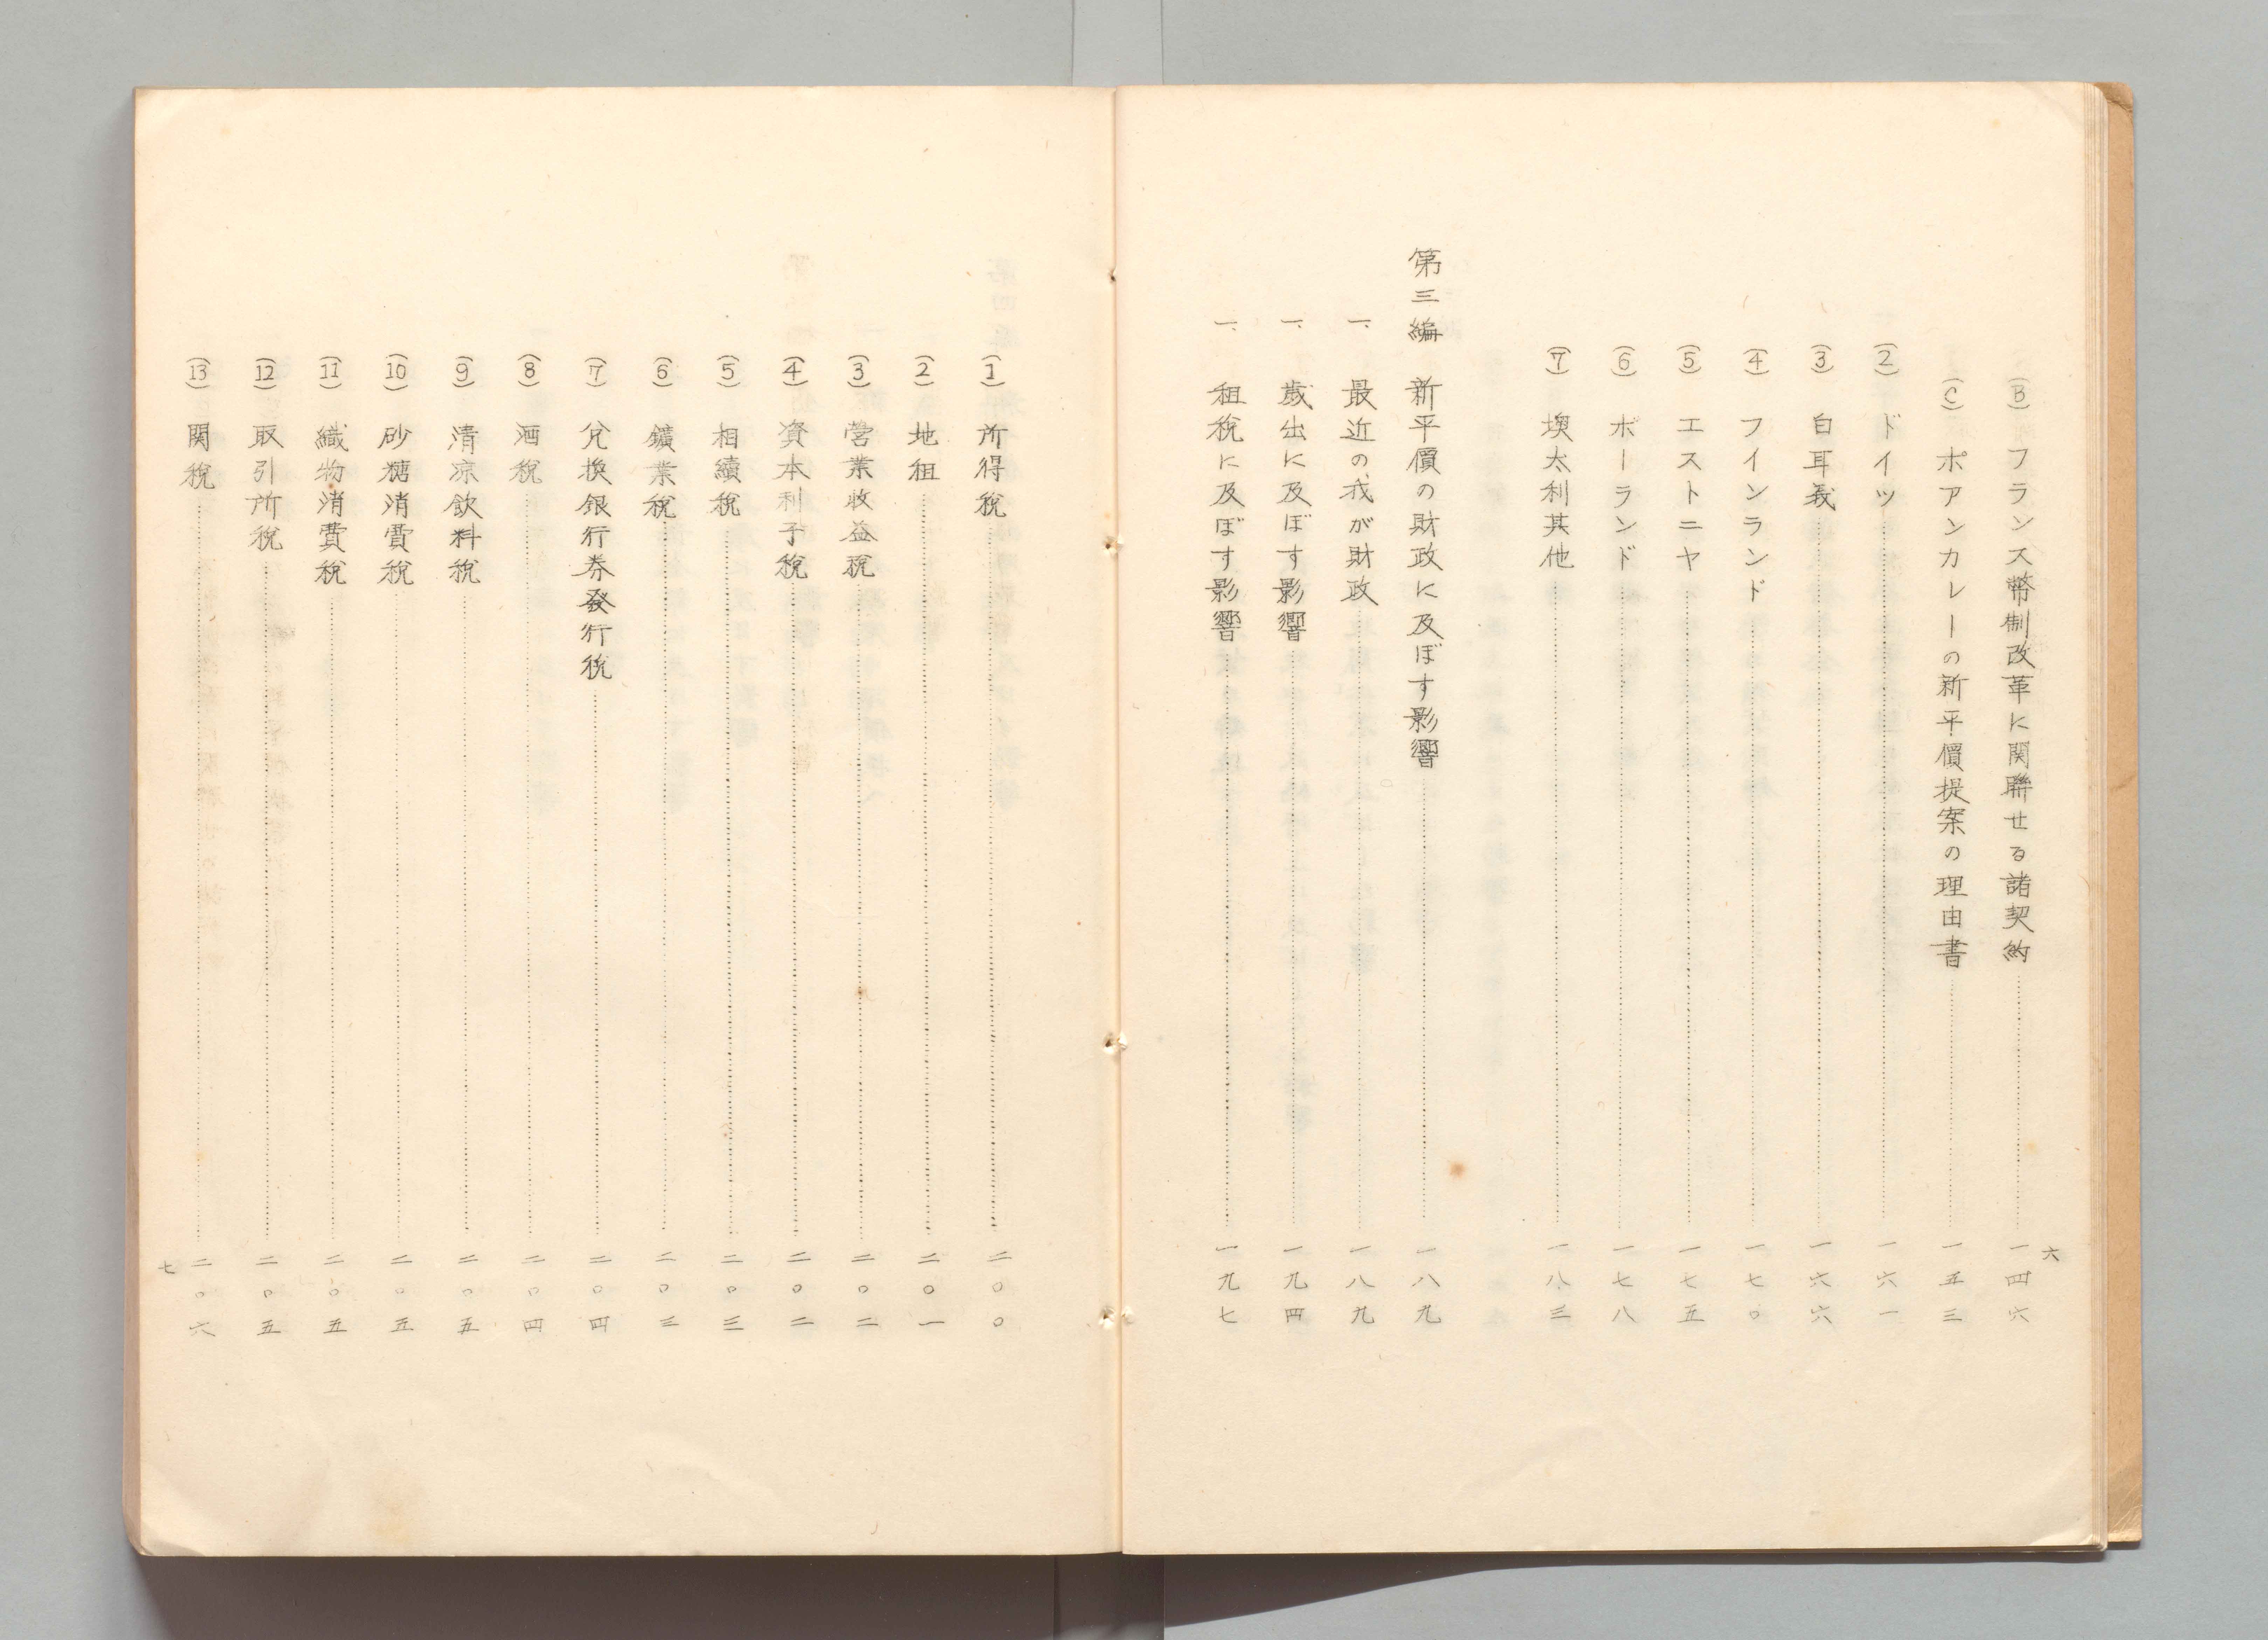 (B) フランス幣制改革に関聯せる諸契約 一四六
(C) ポアンカレーの新平價提案の理由書 一五三
(2) ドイツ 一六一
(3) 白耳義 一六六
(4) フインランド 一七〇
(5) エストニヤ 一七五
(6) ポーランド 一七八
(7) 墺太利其他 一八三
第三編 新平價の財政に及ぼす影響 一八九
一、 最近の我が財政 一八九
一、 歳出に及ぼす影響 一九四
一、 租税に及ぼす影響 一九七
六
(1) 所得税 二〇〇
(2) 地租 二〇一
(3) 営業收益税 二〇二
(4) 資本利子税 二〇二
(5) 相續税 二〇三
(6) 鑛業税 二〇三
(7) 兌換銀行券發行税 二〇四
(8) 酒税 二〇四
(9) 清凉飲料税 二〇五
(10) 砂糖消費税 二〇五
(11) 織物消費税 二〇五
(12) 取引所税 二〇五
(13) 関税 二〇六
七